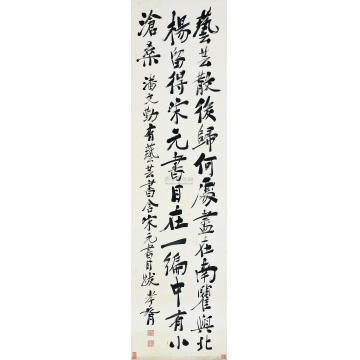 藝芸散後歸何處盡在南瞿與北
楊留得宋元書目在一編中有小
滄桑 潘文勤有藝芸書舍宋元書目跋 孝胥